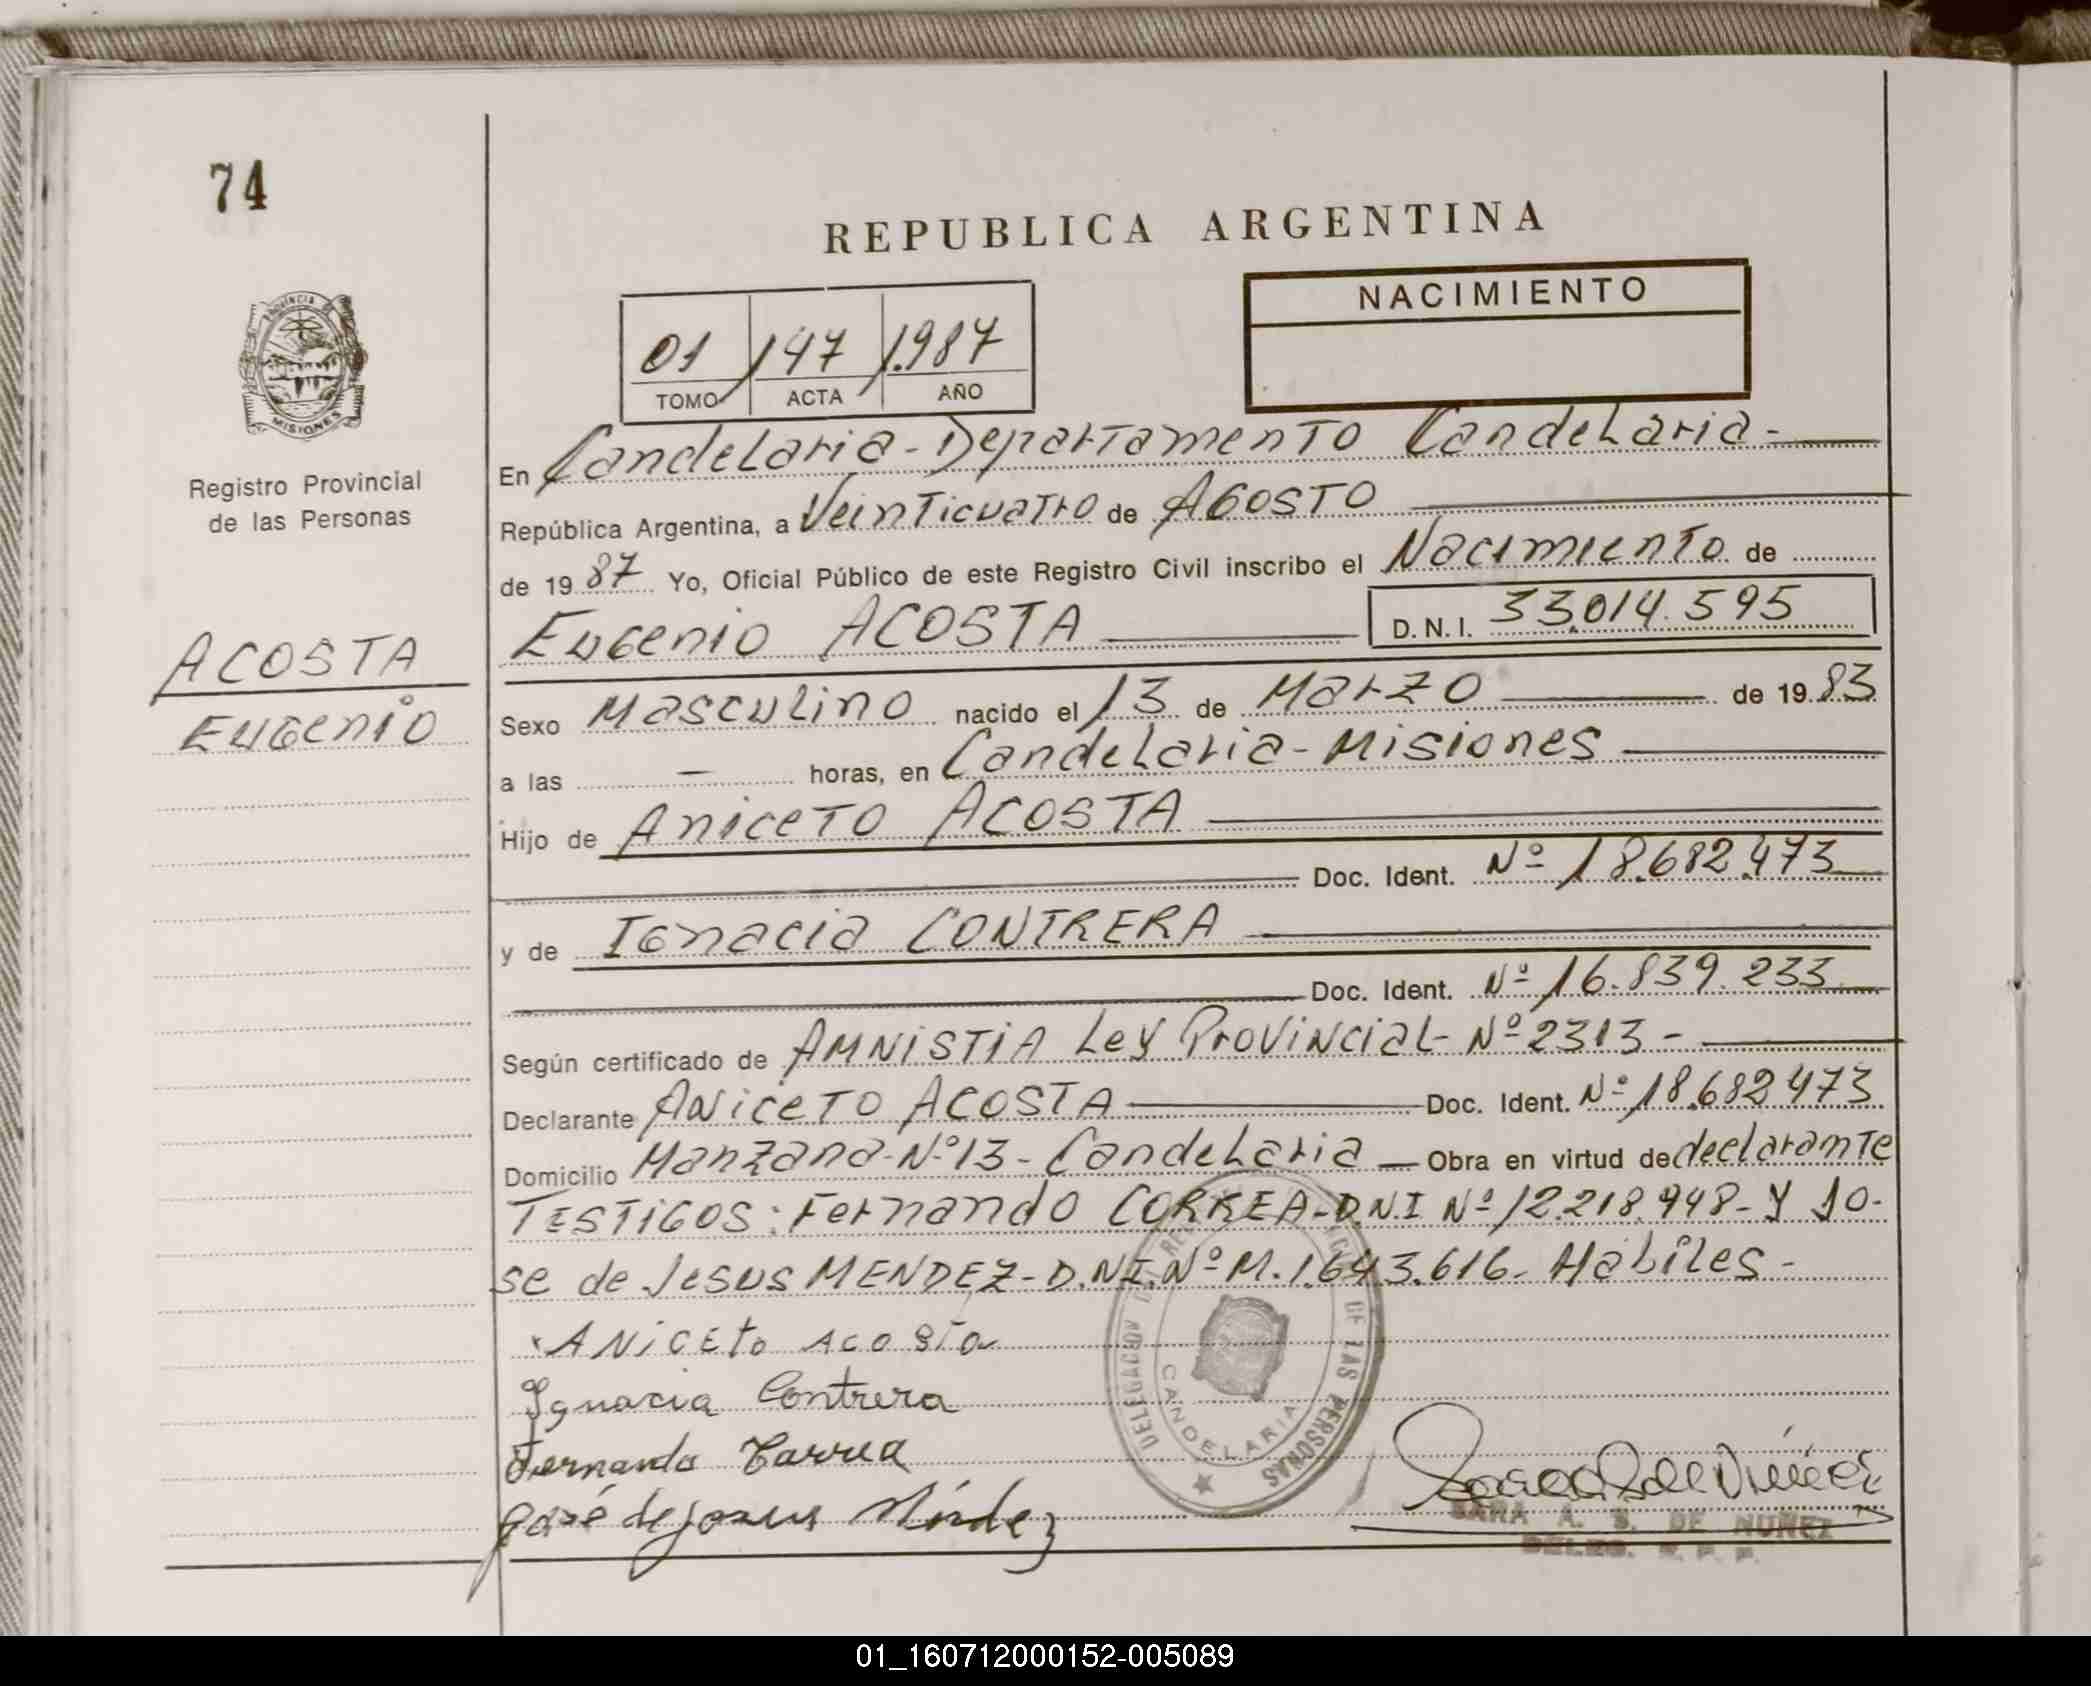 74
REPUBLICA ARGENTINA
PROVINCIA DE
MISIONES
Registro Provincial
de las Personas
NACIMIENTO
01 / 147 / 1.987
TOMO ACTA AÑO
En Candelaria - Departamento Candelaria -
República Argentina, a Veinticuatro de AGOSTO
de 1987 Yo, Oficial Público de este Registro Civil inscribo el Nacimiento de
Eugenio ACOSTA D.N.I. 33.014.595
ACOSTA
EUGENIO
Sexo Masculino nacido el 13 de Marzo de 1983
a las — horas, en Candelaria - Misiones
Hijo de Aniceto ACOSTA
Doc. Ident. Nº 18.682.473
y de Ignacia CONTRERA
Doc. Ident. Nº 16.839.233
Según certificado de AMNISTIA Ley Provincial - Nº 2313 -
Declarante ANICETO ACOSTA Doc. Ident. Nº 18.682 473
Domicilio Manzana - Nº 13 - Candelaria — Obra en virtud de declarante
TESTIGOS: Fernando CORREA - D.N.I Nº 12.218.948 - Y Jo-
se de Jesus MENDEZ - D.NI. Nº M. 1.643.616 - Habiles -
ANICEto ACOSTA
Ignacia Contrera
Fernando Correa
José de jesus Méndez
DE LAS PERSONAS
CANDELARIA
SARA A. S. DE NUÑEZ
01_160712000152-005089